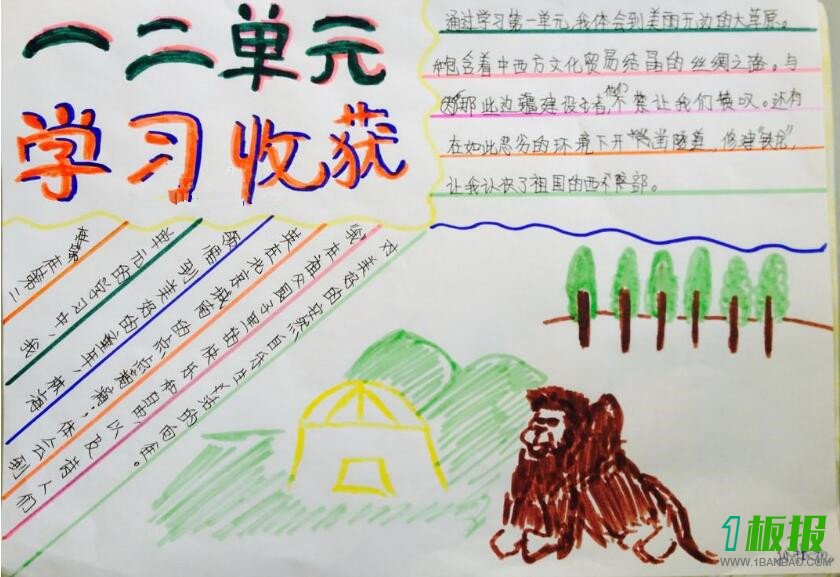 一二单元
学习收获
通过学习第一单元,我体会到美丽无边的大草原。
包含着中西方文化贸易结晶的丝绸之路。与
那些边疆建设者,不禁让我们叹。还有
在如此恶劣的环境下开凿隧道,修建"铁龙",
让我认识了祖国的西部。
在第二
单元的学习中,我
到美好的童年,林海
在北京城南的点点;体会到
在祖父园子里的快乐和自由,以及诗人们
对美好的安然自乐生活的向往。
1板报
WWW.1BANBAO.COM